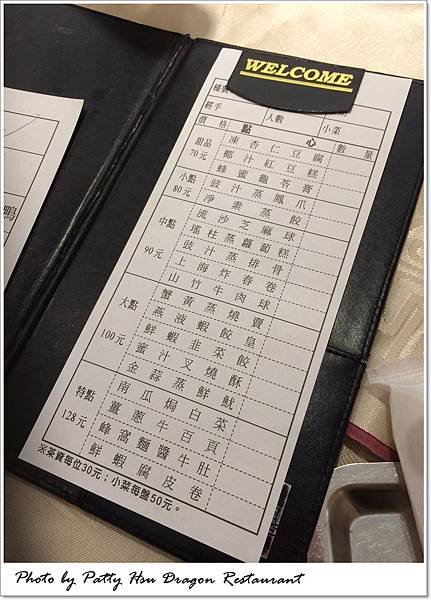 WELCOME
經手 人數 小菜
價格 點心 數量
甜品 70元
凍杏仁豆腐
椰汁紅豆糕
蜂蜜龜苓膏
小點 80元
豉汁蒸鳳爪
淨素蒸餃
中點 90元
流沙芝麻球
瑤柱蒸蘿蔔糕
豉汁蒸排骨
上海炸春卷
山竹牛肉球
大點 100元
蟹黃蒸燒賣
燕液蝦餃皇
鮮蝦韭菜餃
蜜汁叉燒酥
金蒜蒸鮮魷
特點 128元
南瓜焗白菜
薑蔥牛百頁
蜂窩麵醬牛肚
鮮蝦腐皮卷
※茶資每位30元；小菜每盤50元。
鴨
Photo by Patty Hsu Dragon Restaurant